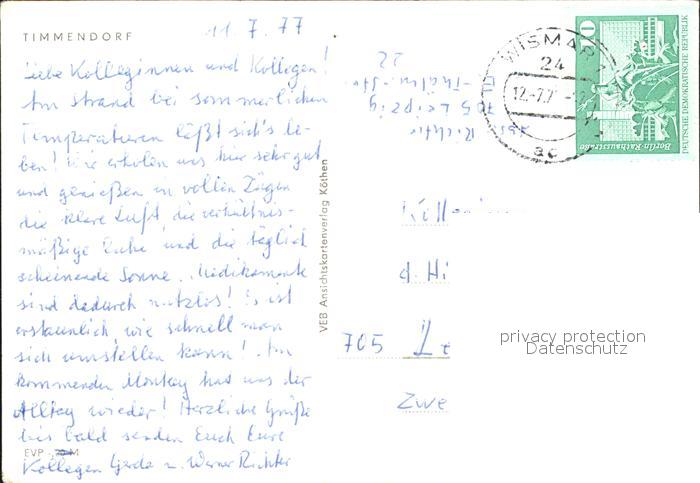 TIMMENDORF
11.7.77
Liebe Kolleginnen und Kollegen!
Am Strand bei sommerlichen
Temperaturen läßt sich's le-
ben! Wir erholen uns hier sehr gut
und genießen in vollen Zügen
die klare Luft, die verhältnis-
mäßige Ruhe und die täglich
scheinende Sonne. Medikamente
sind dadurch nutzlos! Es ist
erstaunlich, wie schnell man
sich umstellen kann! Am
kommenden Montag hat uns der
Alltag wieder! Herzliche Grüße
bis bald senden Euch Eure
Kollegen Gerda u. Werner Richter
EVP
VEB Ansichtskartenverlag Köthen
Abs. Richter
705 Leipzig
22
WISMAR 1
24
12.-7.7
ac
10
Berlin Rathausstraße
DEUTSCHE DEMOKRATISCHE REPUBLIK
d. Hi
705 Le
Zwe
privacy protection
Datenschutz